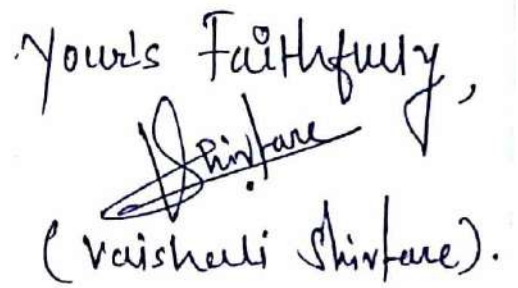 Your's Faithfully,
VShirfare
(Vaishali Shirfare).